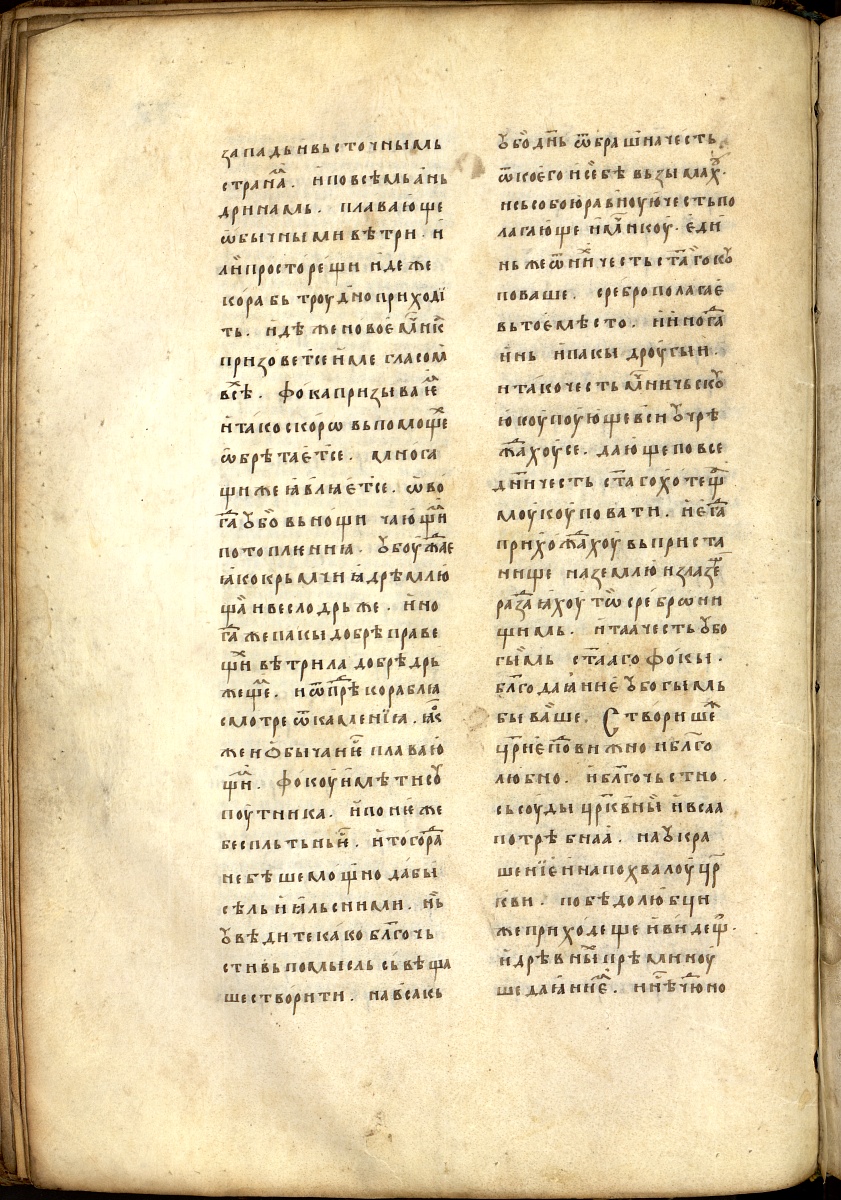 западьи въсточнымь
страна҆мⷨ. и҆ по все́мь а҆нь
дрїнамь. плаваю҆ще
ѡ҆бычными ве́три. и҆
лѝ просторе́щи и҆деже
корабь троудно приходї
ть. и҆де́же новое҆ мⷱ҇никь
призоветсе и҆ме гласомⷨ
все́. фо́ка призываѥ҆
и҆ тако скорѡ вь помощⷯе
ѡ҆бре́тае҆тсе. многа
щи же ꙗ҆влꙗе҆тсе. ѡ҆во
гⷣа ᲂу҆бо вь нощи чаю҆щїи
потоплениꙗ. ᲂу҆боужⷣае
ꙗ҆ко крьмчи ꙗ҆ дре́млю
щаⷢ и весло дрьже. и҆но
гⷣа же пакы добре́ праве
щи ве́трила добре́ дрь
жещеⷨ. и ѿ пре́ корабла
смотре ѿ каменїꙗ. ꙗ҆коⷤ
же и ѻ҆бычаи҆ плаваю҆
щиⷨ. фо́коу и҆ме́ти сᲂу
поутника. и҆ понѥже
бесплътьныи҆. и҆ тогораⷣ
не бе́ше мощно да бы
се́ль и҆ ꙗ҆ль с ними. нь҆
ᲂу҆ве́дите како благⷭ҇очь
стивь помысль све́ща
ше створити. на всакь
ᲂу҆бо дн҃ь ѡ҆брашна честь
ѿ кое҆го и҆ себе́ вьзымахᲂу.
и сь собою҆ равноую҆ честь по
лагаю҆ще и҆ мⷱ҇никоу. е҆ди
нь же ѿ ниⷯ честь ст҃аго кᲂу
поваше. сребро полагае҆
вь тое҆ ме́сто. и҆ и҆ногⷣа
и҆нь и҆ пакы дроугыи҆.
и тако честь мⷱ҇ничьскᲂу
ю҆ коупоую҆ще вси ᲂу҆чре́
жⷣахоусе. даю҆ще по все
дн҃и честь ст҃аго хотещоⷨ
моу коуповати. и҆ е҆гⷣа
прихожⷣахоу вь приста
нище на землю҆ излазеще
разⷣаꙗ҆хоу тѡ сребрѡ ни
щимь. и҆ таа честь ᲂу҆бо
гымь ст҃ааго фокы.
бл҃годаꙗ҆ние҆ ᲂу҆богымь
бываше. Створише же
цр҃и е҆повижно и бл҃го
любно. и҆ бл҃гочьстно.
сьсоуды цр҃квные и҆ всаа
потре́бнаа. на ᲂу҆кра
шенїе҆ и҆ на похвалоу цр҃
кви. победолюбци
же приходеще и҆ видещⷷ.
и҆ дре́вныиⷯ пре́миноу
ше даꙗ҆ниѥ. и нн҃ечюно